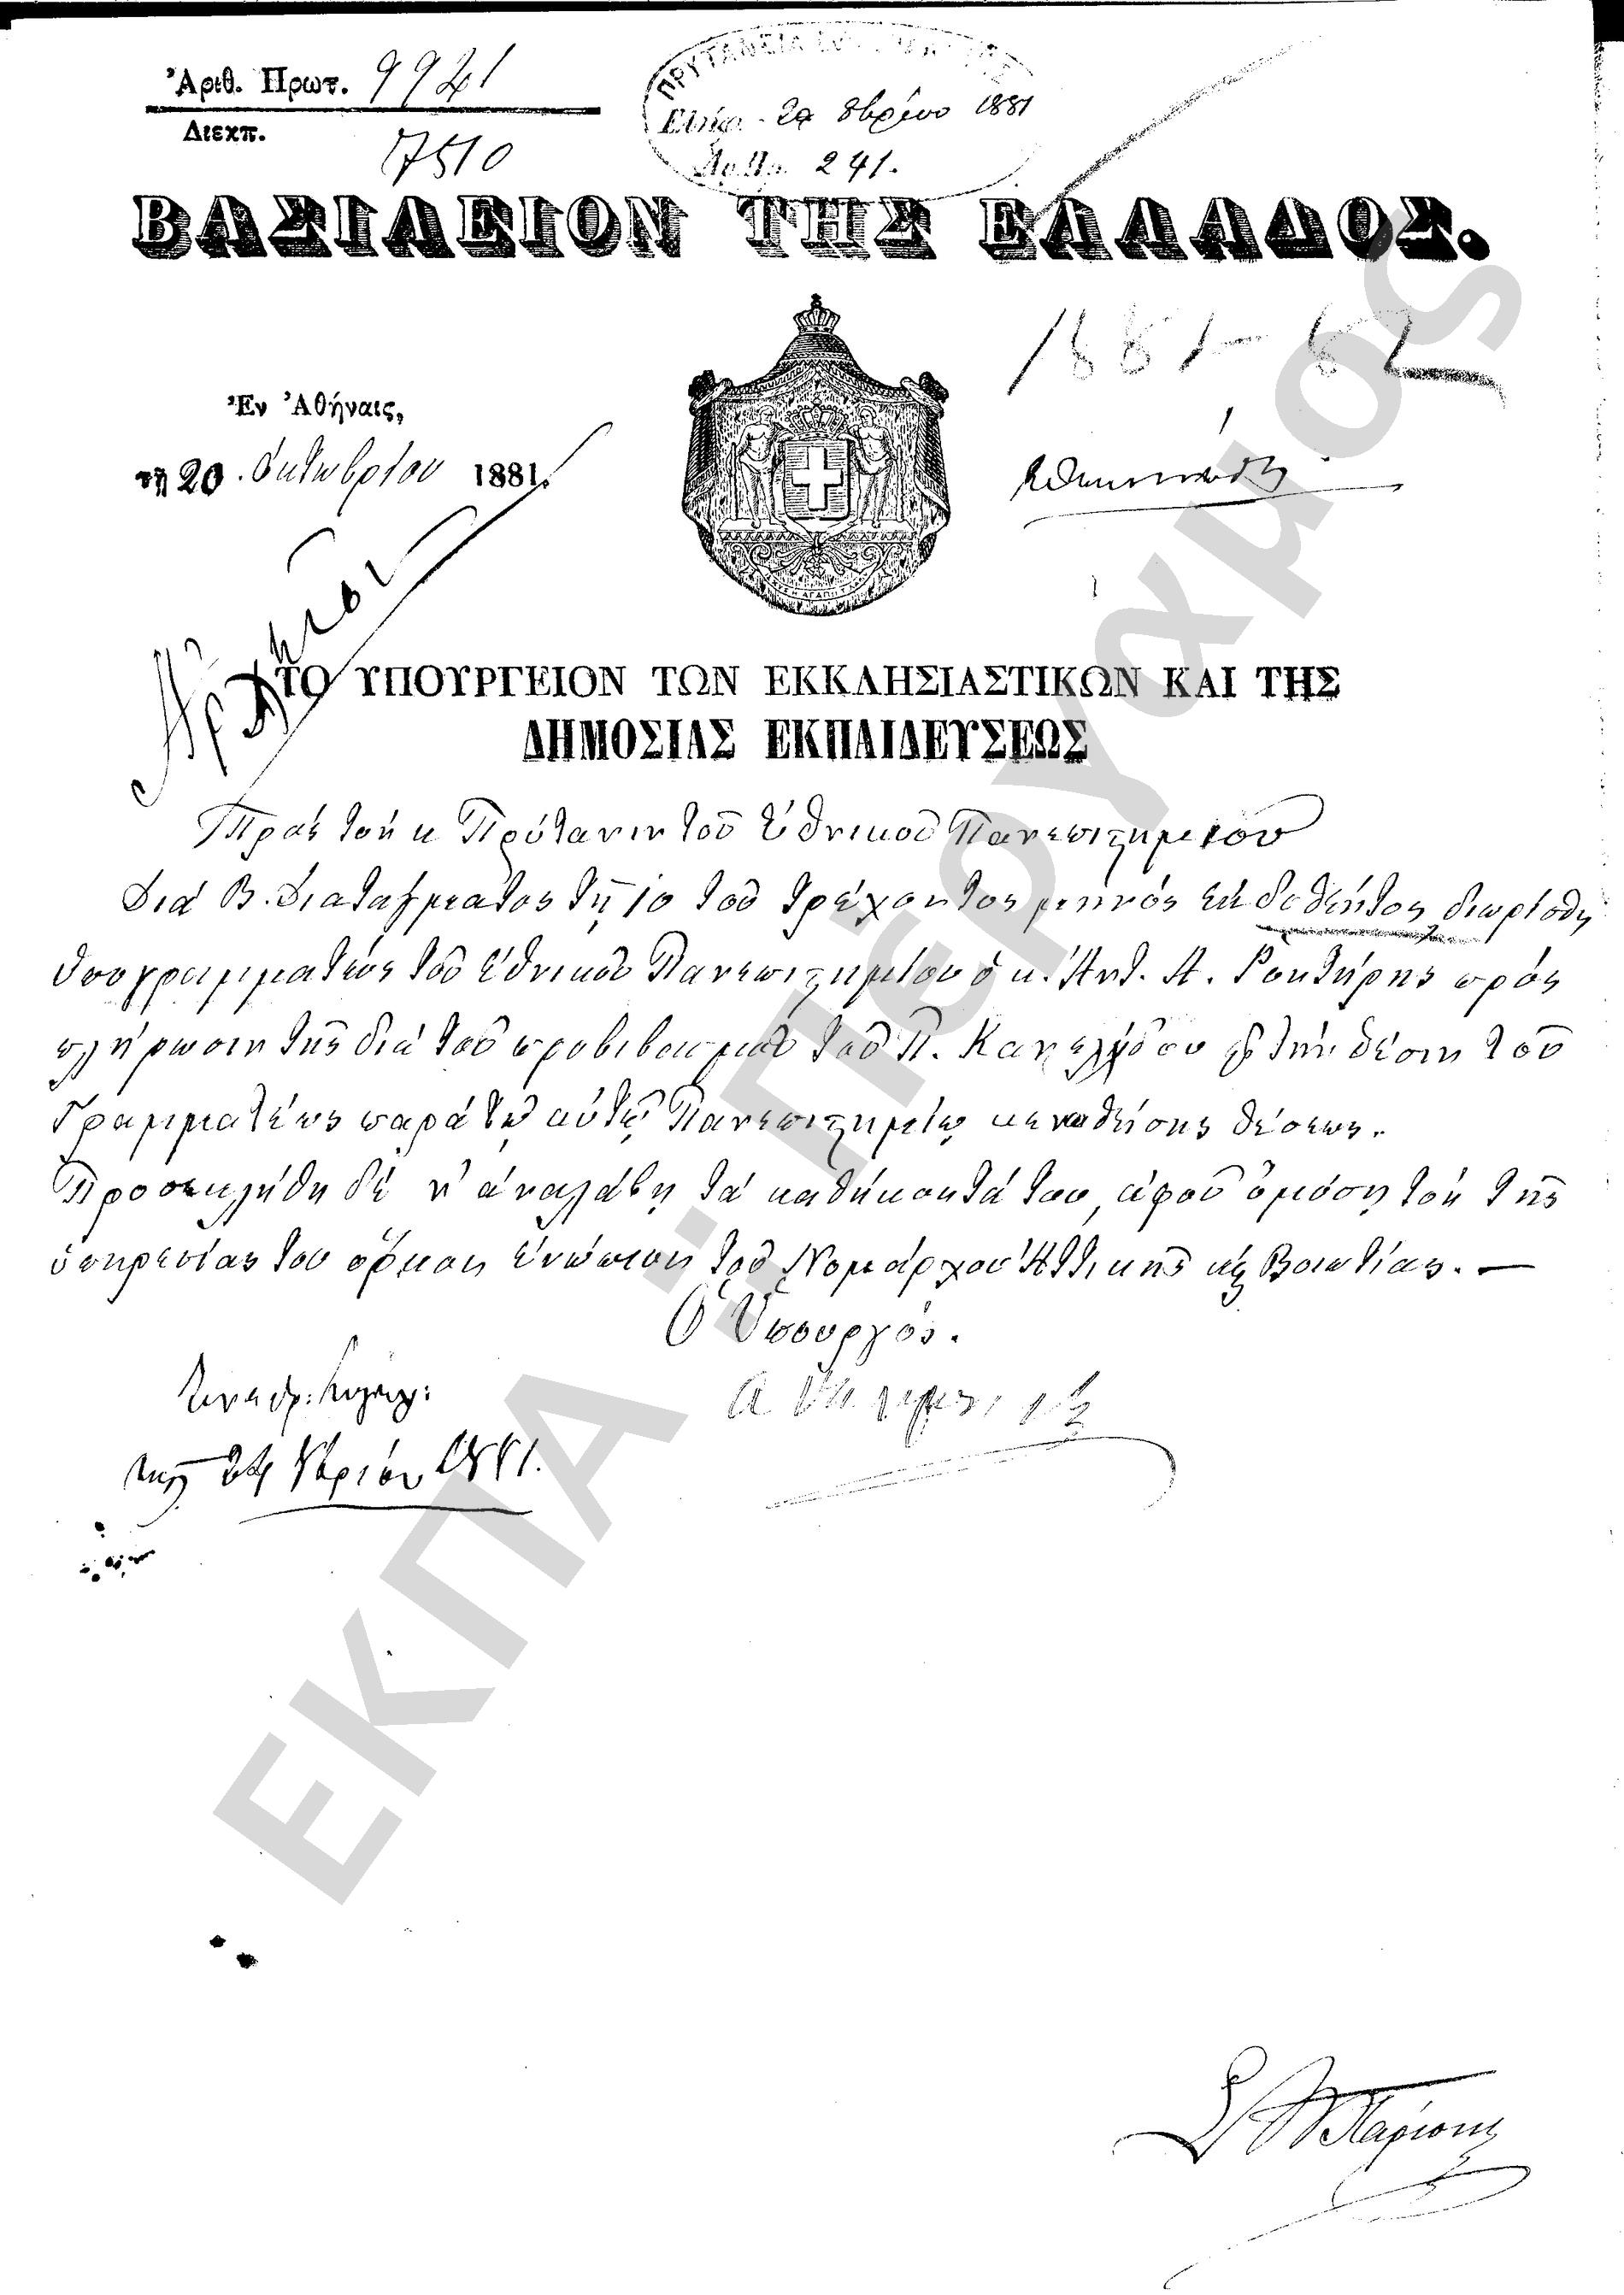 Ἀριθ. Πρωτ. 9921
Διεκπ. 7510
ΠΡΥΤΑΝΕΙΑ
24 8βρίου 1881
241.
ΒΑΣΙΛΕΙΟΝ ΤΗΣ ΕΛΛΑΔΟΣ.
1881-82
Ἐν Ἀθήναις,
τῇ 20 Ὀκτωβρίου 1881.
ΤΟ ΥΠΟΥΡΓΕΙΟΝ ΤΩΝ ΕΚΚΛΗΣΙΑΣΤΙΚΩΝ ΚΑΙ ΤΗΣ
ΔΗΜΟΣΙΑΣ ΕΚΠΑΙΔΕΥΣΕΩΣ
Πρὸς τὸν κ Πρύτανιν τοῦ Ἐθνικοῦ Πανεπιστημείου
Διὰ Β. Διατάγματος τῇ 10 τοῦ τρέχοντος μηνὸς ἐκδοθέντος διωρίσθη
ὑπογραμματεὺς τοῦ Ἐθνικοῦ Πανεπιστημείου ὁ κ. Ἀντ. Α. Ροντήρης πρὸς
πλήρωσιν τῆς διὰ τοῦ προβιβασμοῦ τοῦ Π. Κανελλίδου εἰς τὴν θέσιν τοῦ
Γραμματέως παρὰ τῷ αὐτῷ Πανεπιστημείῳ κενωθείσης θέσεως.
Προσεκλήθη δὲ ν' ἀναλάβῃ τὰ καθήκοντά του, ἀφοῦ ὀμόσῃ τὸν τῆς
ὑπηρεσίας του ὅρκον ἐνώπιον τοῦ Νομάρχου Ἀττικῆς κ Βοιωτίας. —
Ὁ Ὑπουργός.
24 8βρίου 1881.
ΕΚΠΑ - ΠΕΡΓΑΜΟΣ